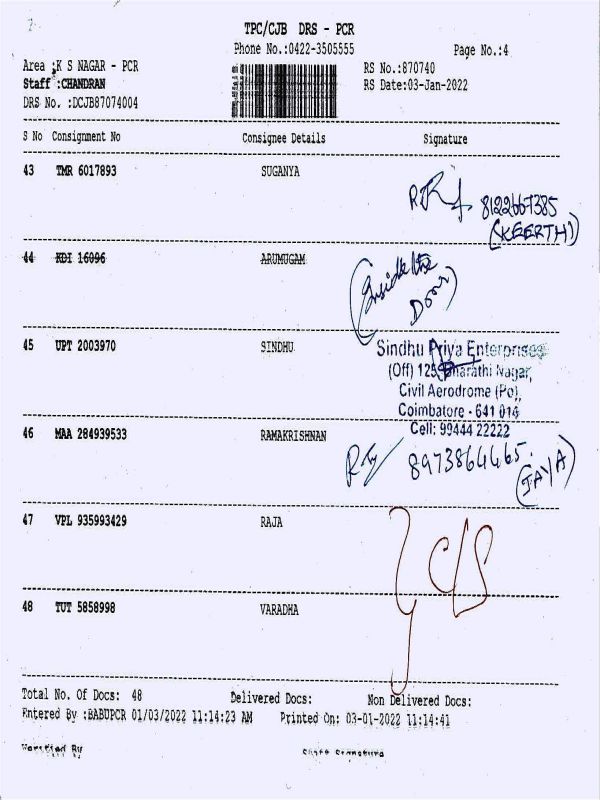 TPC/CJB DRS - PCR
Phone No.:0422-3505555 Page No.:4
Area :K S NAGAR - PCR RS No.:870740
Staff :CHANDRAN RS Date:03-Jan-2022
DRS No. :DCJB87074004
S No Consignment No Consignee Details Signature
43 TMR 6017893 SUGANYA
8122667385
(KEERTHI)
44 KDI 16096 ARUMUGAM
(Inside the
Door)
45 UPT 2003970 SINDHU
Sindhu Priya Enterprises
(Off) 128, Bharathi Nagar,
Civil Aerodrome (Po),
Coimbatore - 641 014
Cell: 99444 22222
46 MAA 284939533 RAMAKRISHNAN
8973864465.
(JAYA)
47 VPL 935993429 RAJA
C/S
48 TUT 5858998 VARADHA
Total No. Of Docs: 48 Delivered Docs: Non Delivered Docs:
Entered By :BABUPCR 01/03/2022 11:14:23 AM Printed On: 03-01-2022 11:14:41
Verified By